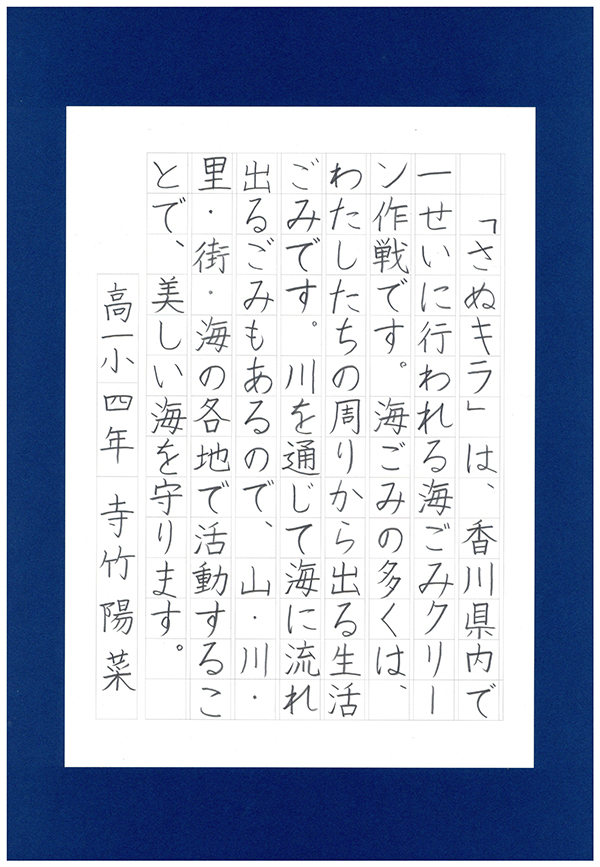 「さぬキラ」は、香川県内で
一せいに行われる海ごみクリー
ン作戦です。海ごみの多くは、
わたしたちの周りから出る生活
ごみです。川を通じて海に流れ
出るごみもあるので、山・川・
里・街・海の各地で活動するこ
とで、美しい海を守ります。
高一小四年 寺竹陽菜